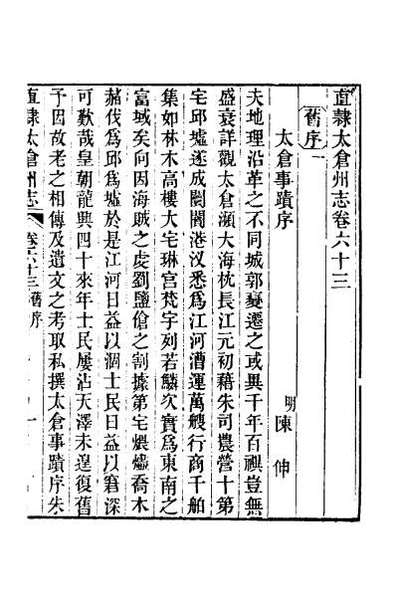 直隷太倉州志卷六十三
舊序一
太倉事蹟序
明 陳伸
夫地理沿革之不同城郭變遷之或異千年百禩豈無
盛衰詳觀太倉瀕大海枕長江元初藉朱司農營卜第
宅邱墟遂成闤闠港汊悉爲江河漕運萬艘行商千舶
集如林木高樓大宅琳宮梵宇列若鱗次實爲東南之
富域矣向因海賊之虔劉鹽傖之割據第宅煨燼喬木
赭伐爲邱爲墟於是江河日益以涸士民日益以窘深
可歎哉皇朝龍興四十來年士民屢沾天澤未遑復舊
予因故老之相傳及遺文之考取私撰太倉事蹟序朱
直隷太倉州志 卷六十三 舊序 一